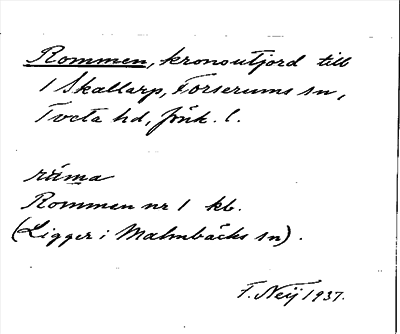 Rommen, kronoutjord till
1 Skallarp, Forserums sn,
Tveta hd, Jönk. l.
råma
Rommen nr 1 kb.
(Ligger i Malmbäcks sn).
F. Neij 1937.